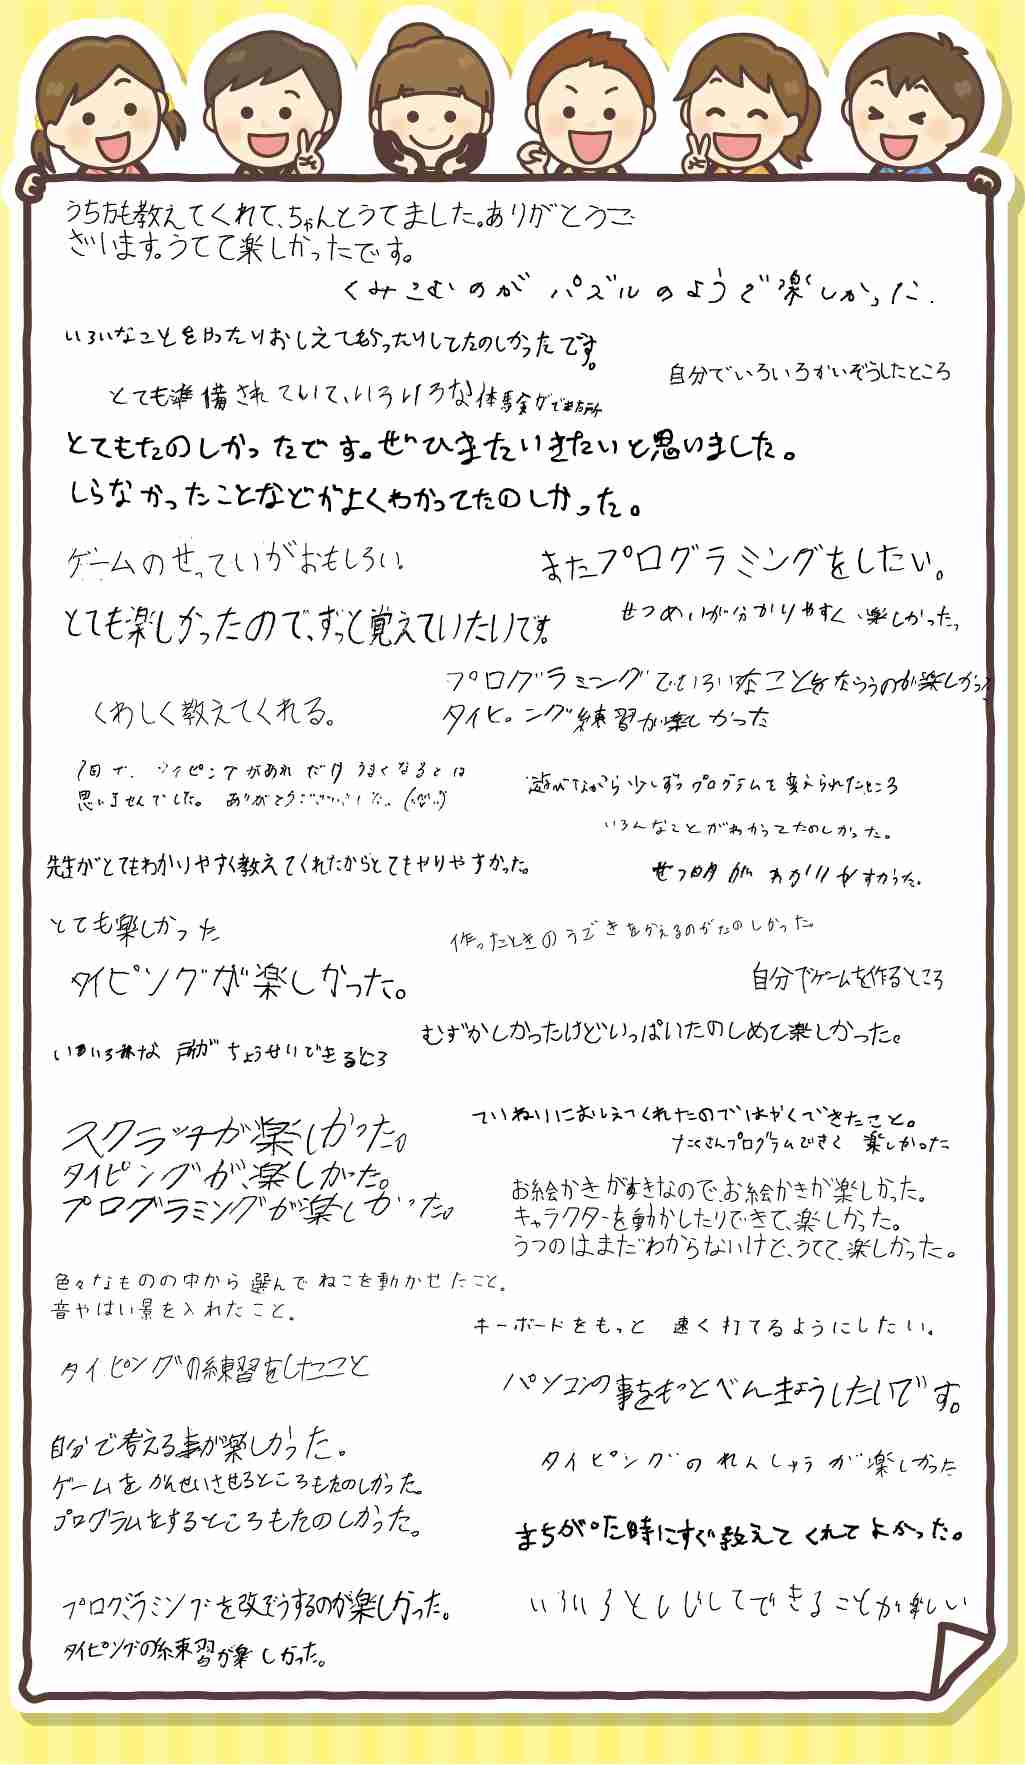 うち方も教えてくれて、ちゃんとうてました。ありがとうご
ざいます。うてて楽しかったです。
くみこむのがパズルのようで楽しかった.
いろいろなことをやったりおしえてもらったりしてたのしかったです。
自分でいろいろかいぞうしたところ
とても準備されていて、いろいろな体験ができた所
とてもたのしかったです。ぜひまたいきたいと思いました。
しらなかったことなどがよくわかってたのしかった。
ゲームのせっていがおもしろい.
またプログラミングをしたい。
とても楽しかったので、ずっと覚えていたいです。
せつめいが分かりやすく、楽しかった。
プログラミングでいろいろなことをならうのが楽しかった
くわしく教えてくれる。
タイピング練習が楽しかった
1日で、タイピングがあれだけうまくなるとは
思いませんでした。ありがとうございました。
遊びながら少しずつプログラムを変えられたところ
いろんなことがわかってたのしかった。
先生がとてもわかりやすく教えてくれたからとてもやりやすかった。
せつ明がわかりやすかった。
とても楽しかった
作ったときのうごきをかえるのがたのしかった
タイピングが楽しかった。
自分でゲームを作るところ
むずかしかったけどいっぱいたのしめて楽しかった。
いろいろな所がちょうせいできるところ
スクラッチが楽しかった。
タイピングが、楽しかった。
プログラミングが楽しかった。
ていねいにおしえてくれたのではやくできたこと。
たくさんプログラムできて楽しかった
お絵かきがすきなので、お絵かきが楽しかった。
キャラクターを動かしたりできて、楽しかった。
うつのは、まだわからないけど、うてて、楽しかった。
色々なものの中から選んでねこを動かせたこと。
音やはい景を入れたこと。
キーボードをもっと速く打てるようにしたい。
タイピングの練習をしたこと
パソコンの事をもっとべんきょうしたいです。
自分で考える事が楽しかった。
ゲームをかんせいさせるところもたのしかった。
プログラムをするところもたのしかった。
タイピングのれんしゅうが楽しかった
まちがった時にすぐ教えてくれてよかった。
プログラミングを改ぞうするのが楽しかった。
タイピングの練習が楽しかった。
いろいろとしてできることが楽しい